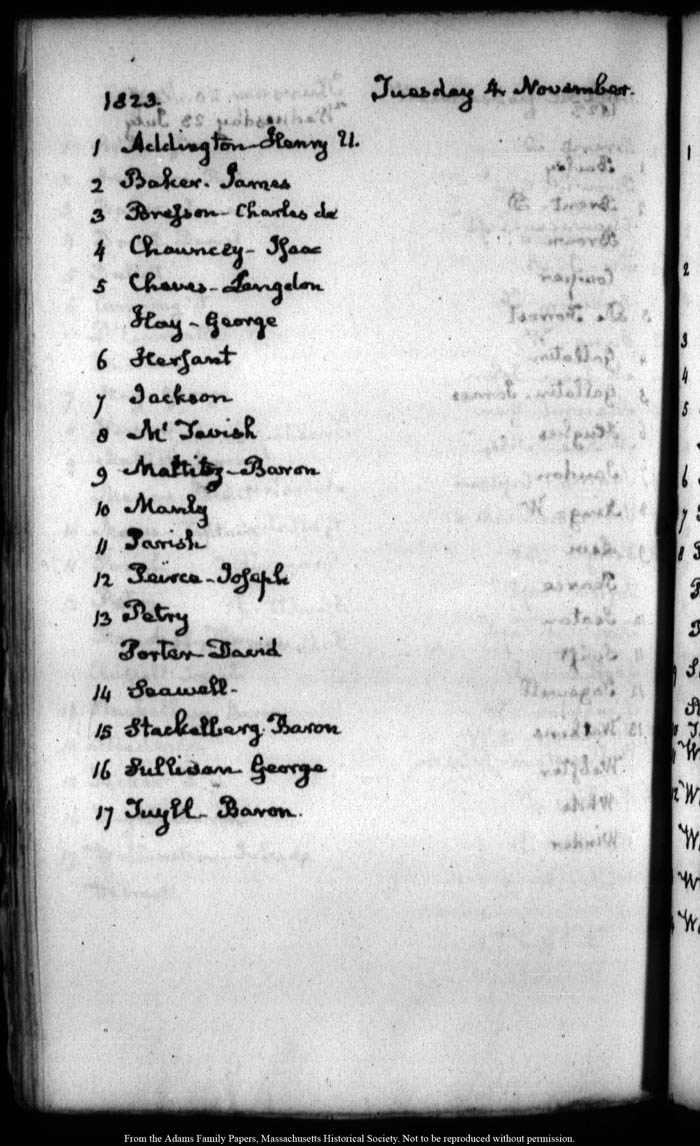 1823. Tuesday 4. November.
1 Addington - Henry U.
2 Baker. James
3 Breſson - Charles de
4 Chauncey - Iſaac
5 Cheves - Langdon
Hay - George
6 Herſant
7 Jackson
8 Mc Tavish
9 Maltitz - Baron
10 Manly
11 Parish
12 Peirce - Joſeph
13 Petry
Porter David
14 Seawell -
15 Stackelberg. Baron
16 Sullivan George
17 Tuyll - Baron.
From the Adams Family Papers, Massachusetts Historical Society. Not to be reproduced without permission.